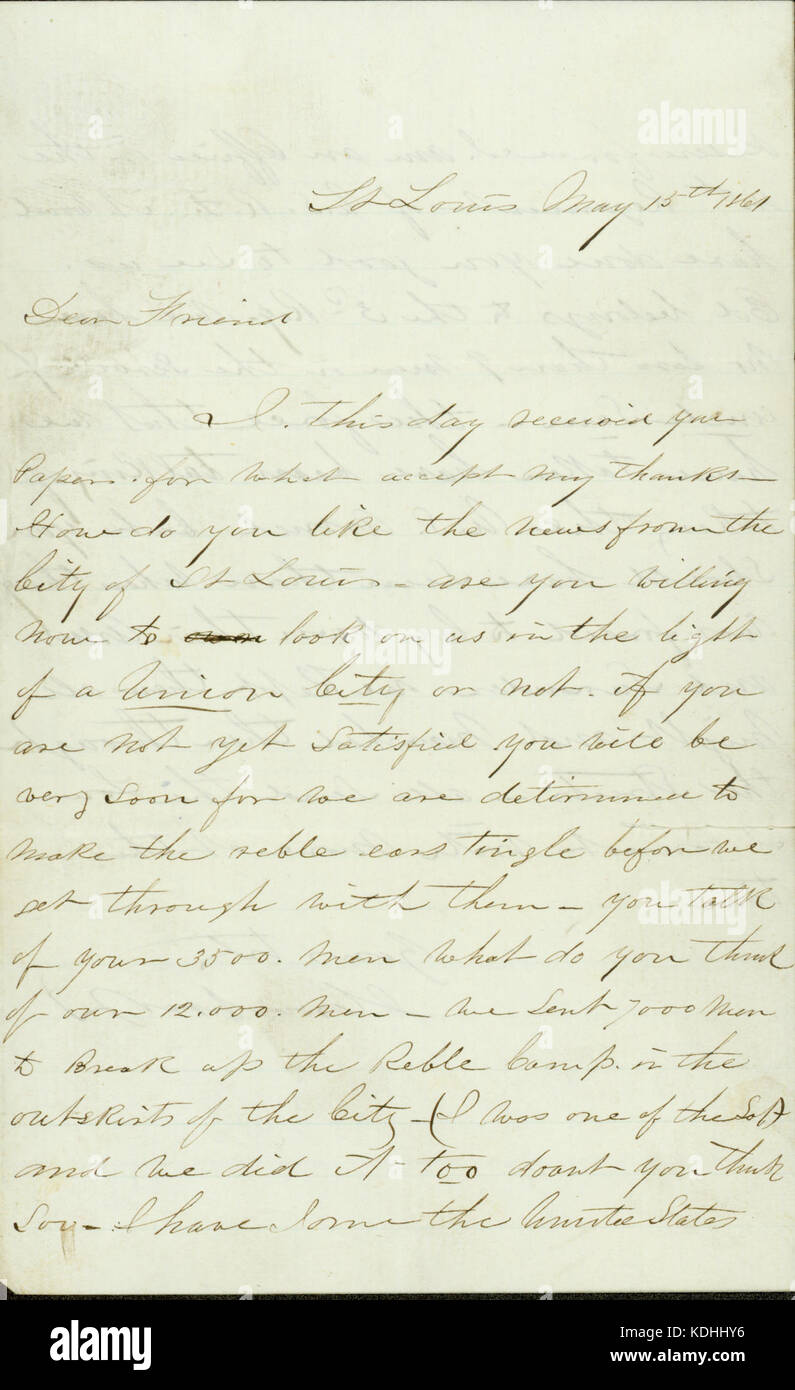 St Louis May 15th 1861
Dear Friend
I. this day received your
Papers. for what accept my thanks—
How do you like the news from the
City of St Louis – are you willing
now to look on us in the light
of a Union City or not. if you
are not yet Satisfied you will be
very Soon for we are determined to
make the reble ears tingle before we
get through with them – you talk
of your 3500. men what do you think
of our 12.000. men – we Sent 7000 Men
to Break up the Reble Camp. in the
outskirts of the City – (I was one of the
and we did it too doant you think
Soy – I have Jorne the Unitee States
alamy stock photo
KDHHY6